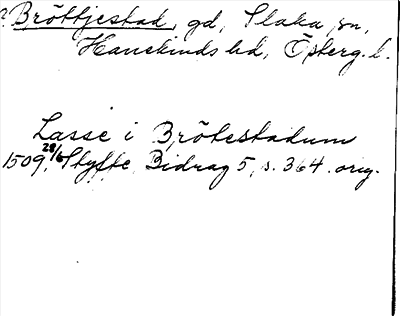 ? Bröttjestad, gd, Slaka sn,
Hanekinds hd, Österg. l.
Lasse i Brötestadum
1509 28/6 Styffe, Bidrag 5, s. 364. orig.